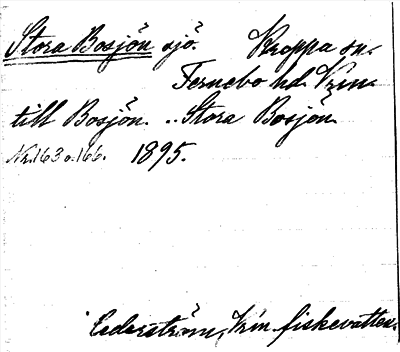 Stora Bosjön sjö. Kroppa sn.
Fernebo hd. Vrml.
till Bosjön. .. Stora Bosjön.
Nr. 163 o. 166. 1895.
Cederström, Vrm. fiskevatten.